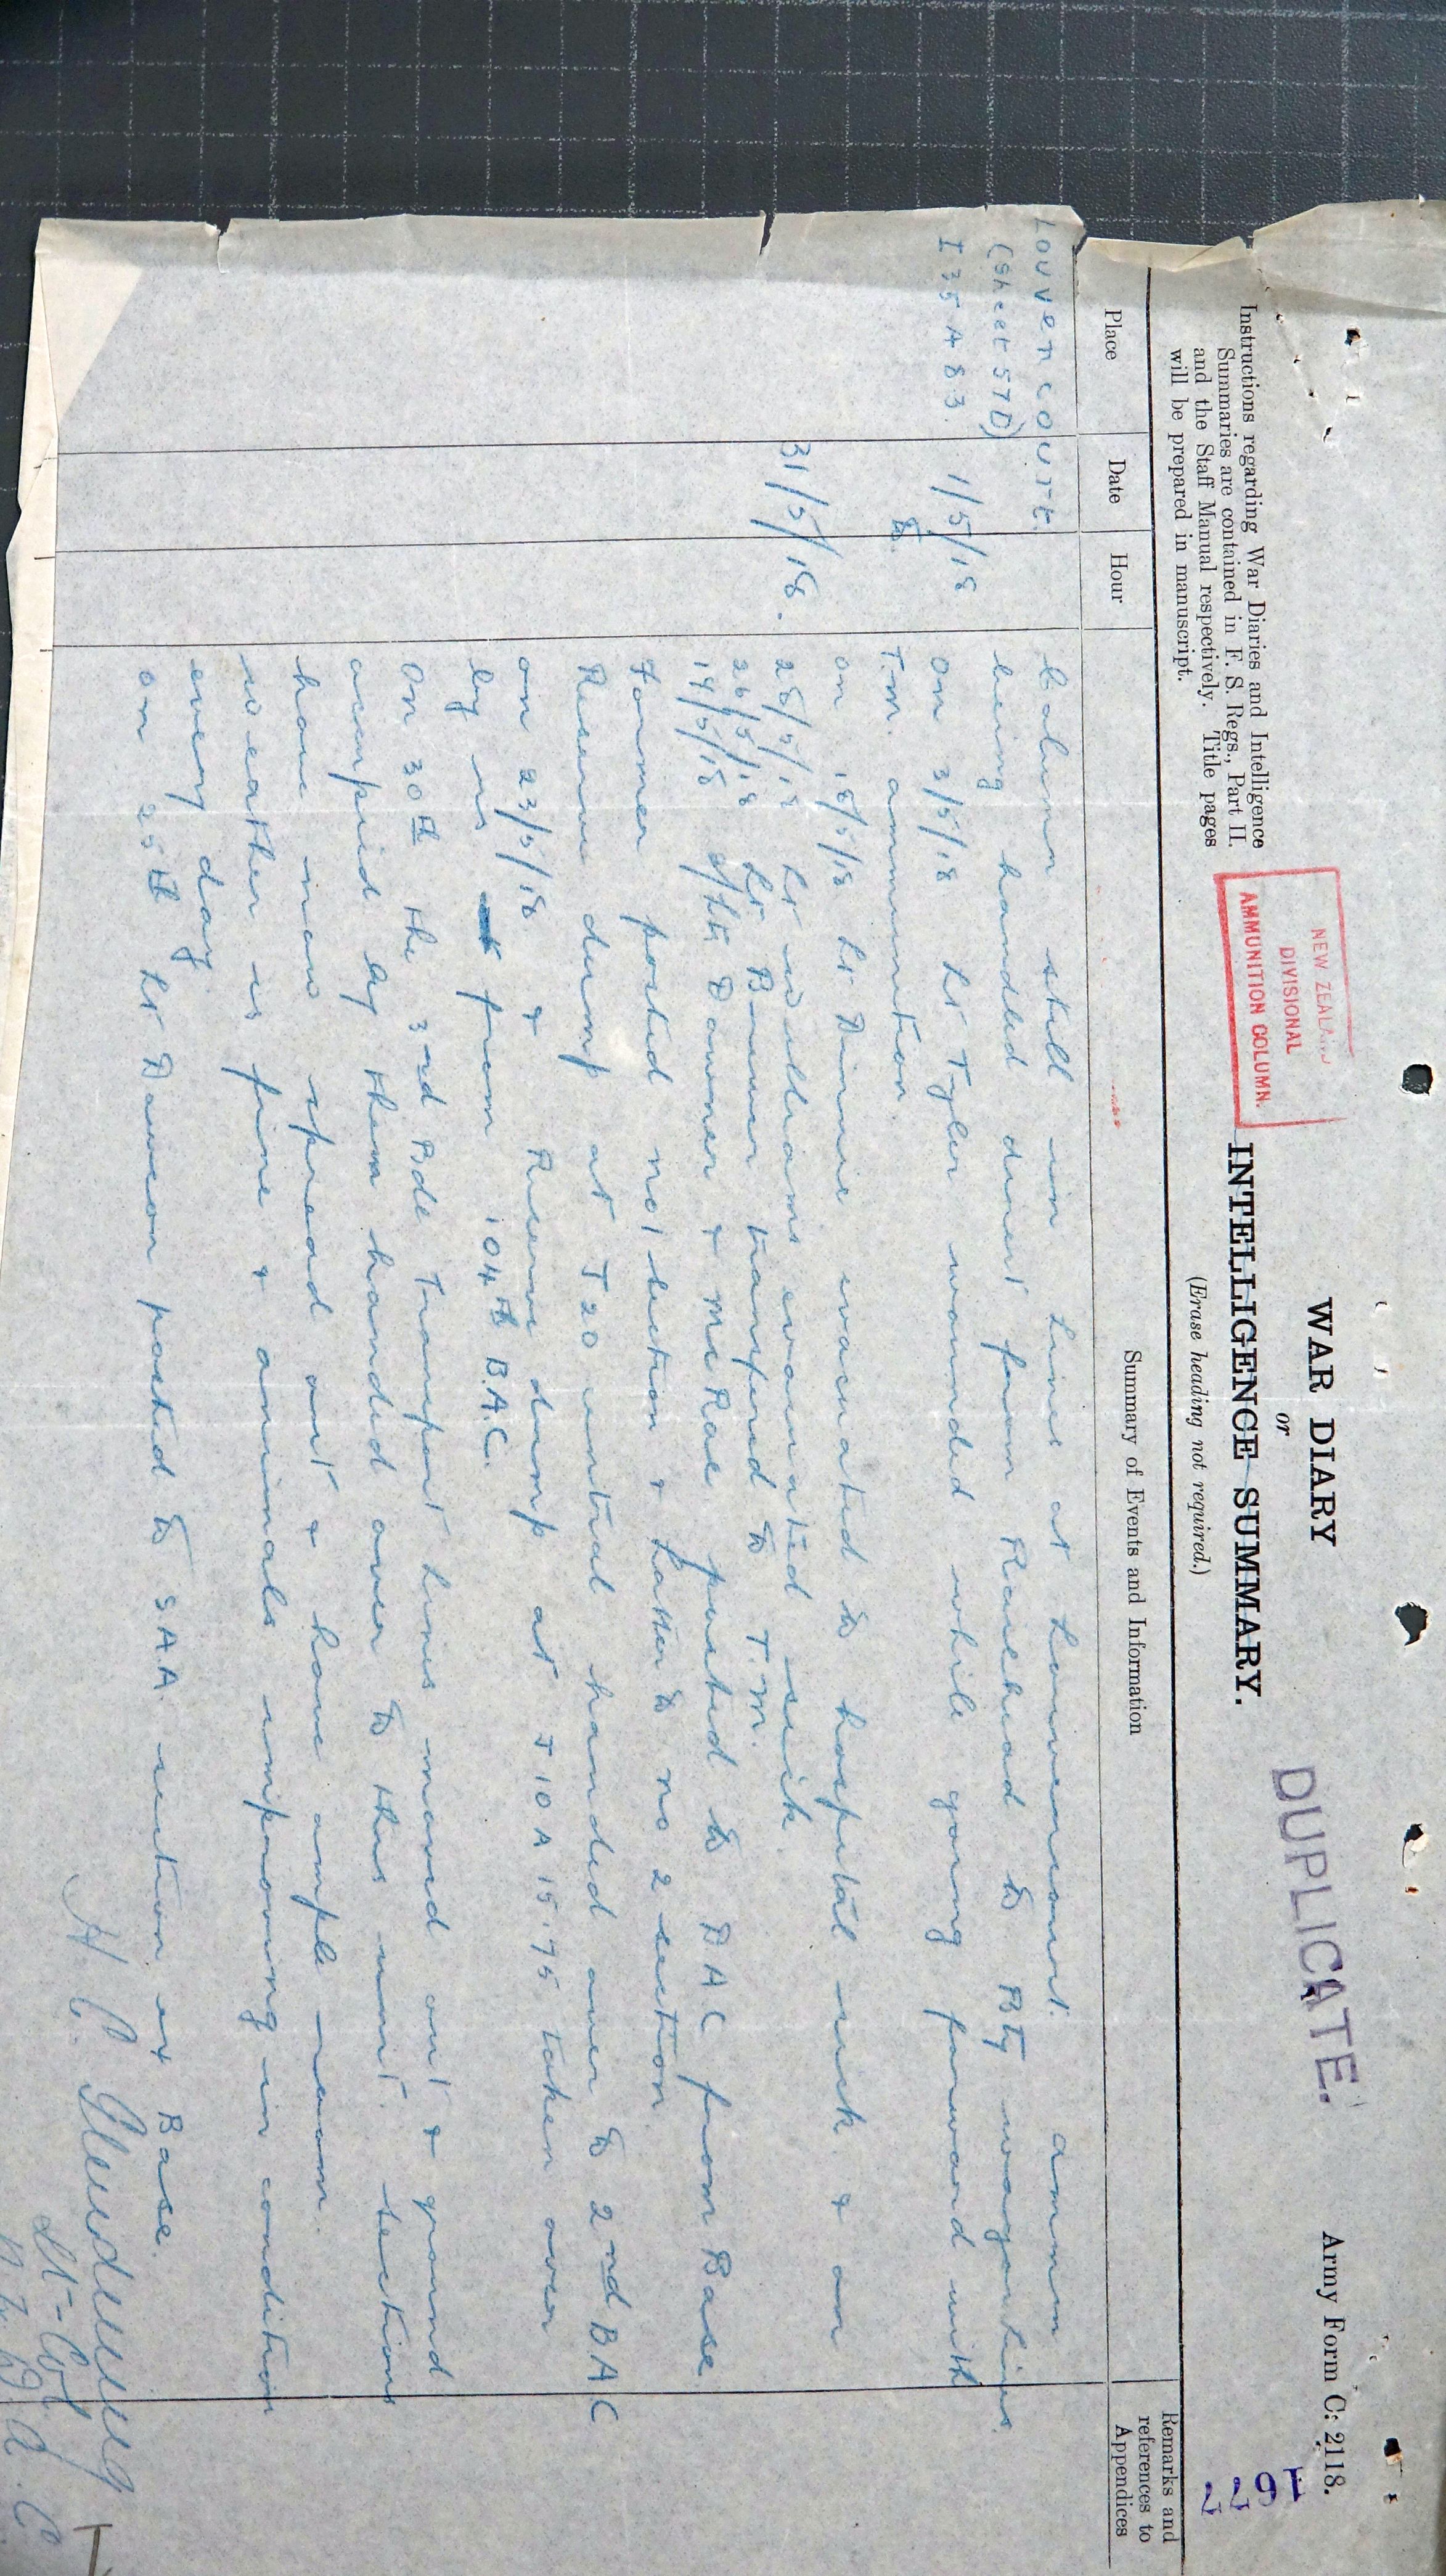 Army Form C. 2118.
1677
WAR DIARY
or
INTELLIGENCE SUMMARY.
(Erase heading not required.)
DUPLICATE.
NEW ZEALAND
DIVISIONAL
AMMUNITION COLUMN.
Instructions regarding War Diaries and Intelligence
Summaries are contained in F. S. Regs., Part II.
and the Staff Manual respectively. Title pages
will be prepared in manuscript.
Place
Date
Hour
Summary of Events and Information
Remarks and
references to
Appendices
Louvencourt.
(Sheet 57D)
I 35 A 8.3.
1/5/18
to
31/5/18.
Column still in lines at Louvencourt. Ammn
being handled direct from Railhead to Bty wagon lines.
On 3/5/18 Lt Tyler wounded while going forward with
T.M. ammunition.
on 18/5/18 Lt Dinnie evacuated to hospital sick & on
28/5/18 Lt Williams evacuated sick
26/5/18 Lt transfered to T.M.
14/5/18 2/Lts Downer & McRae posted to DAC from Base
Former posted no 1 section & Latter to no 2 section.
Reserve dump at J 20 central handed over to 2nd BAC
on 23/5/18 & Reserve dump at J 10 A 15.75 taken over
by us from 104th B.A.C.
On 30th the 3rd Bde Transport Lines moved out & ground
occupied by them handed over to this unit. Sections
have now spread out & have ample room.
weather is fine & animals improving in condition
every day.
on 25th Lt Dawson posted to SAA section ex Base.
H C Glendenning
Lt-Col
N.Z.D.A.C.